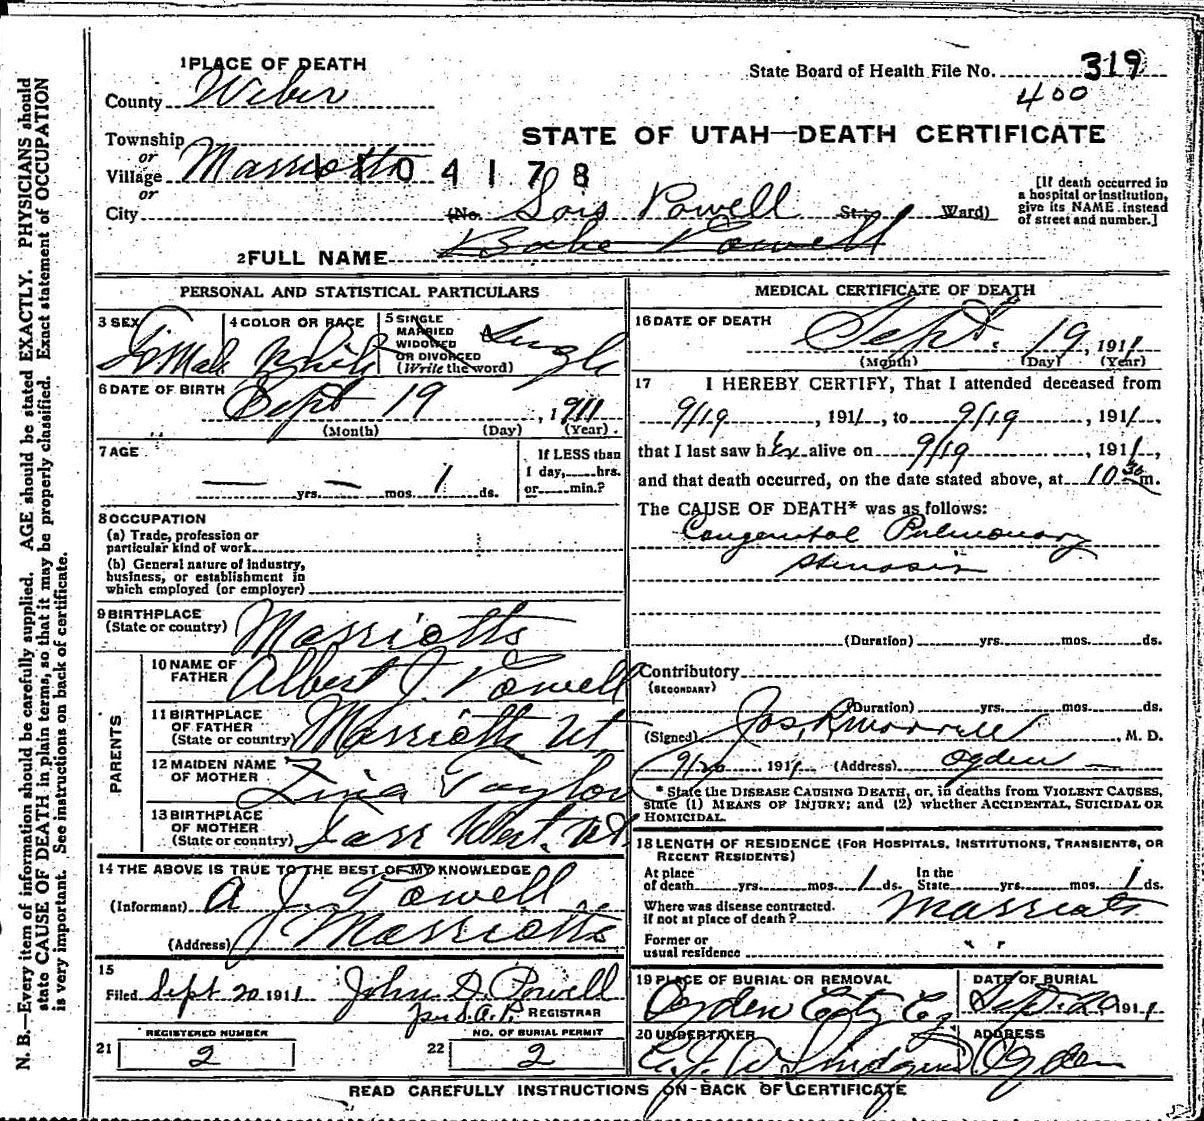 1 PLACE OF DEATH
State Board of Health File No. 319
400
County Weber
STATE OF UTAH—DEATH CERTIFICATE
Township
or
Village Marriotts
1104178
or
City
(No. Lois Powell St.; Ward)
[If death occurred in
a hospital or institution,
give its NAME instead
of street and number.]
2 FULL NAME Babe Powell
PERSONAL AND STATISTICAL PARTICULARS
3 SEX Female
4 COLOR OR RACE White
5 SINGLE
MARRIED
WIDOWED
OR DIVORCED
(Write the word) Single
6 DATE OF BIRTH Sept 19, 1911
(Month) (Day) (Year)
7 AGE
— yrs. — mos. 1 ds.
If LESS than
1 day, hrs.
or min.?
8 OCCUPATION
(a) Trade, profession or
particular kind of work
(b) General nature of industry,
business, or establishment in
which employed (or employer)
9 BIRTHPLACE
(State or country) Marriotts
PARENTS
10 NAME OF
FATHER Albert J. Powell
11 BIRTHPLACE
OF FATHER
(State or country) Marriotts Ut
12 MAIDEN NAME
OF MOTHER Taylor
13 BIRTHPLACE
OF MOTHER
(State or country) Farr West. Ut
14 THE ABOVE IS TRUE TO THE BEST OF MY KNOWLEDGE
(Informant) A J. Powell
(Address) Marriotts
15
Filed Sept 20 1911 John D. Powell
per REGISTRAR
REGISTERED NUMBER
21 2
NO. OF BURIAL PERMIT
22 2
MEDICAL CERTIFICATE OF DEATH
16 DATE OF DEATH Sept. 19, 1911
(Month) (Day) (Year)
17 I HEREBY CERTIFY, That I attended deceased from
9/19, 1911, to 9/19, 1911,
that I last saw her alive on 9/19, 1911,
and that death occurred, on the date stated above, at 10 30 m.
The CAUSE OF DEATH* was as follows:
Congenital Pulmonary
stenosis
(Duration) yrs. mos. ds.
Contributory
(SECONDARY)
(Duration) yrs. mos. ds.
(Signed) Jos. R Morrell, M. D.
9/20 1911 (Address) Ogden —
* State the DISEASE CAUSING DEATH, or, in deaths from VIOLENT CAUSES,
state (1) MEANS OF INJURY; and (2) whether ACCIDENTAL, SUICIDAL OR
HOMICIDAL.
18 LENGTH OF RESIDENCE (FOR HOSPITALS, INSTITUTIONS, TRANSIENTS, OR
RECENT RESIDENTS)
At place
of death yrs. mos. 1 ds.
In the
State yrs. mos. 1 ds.
Where was disease contracted.
if not at place of death? Marriots
Former or
usual residence
19 PLACE OF BURIAL OR REMOVAL
Ogden City
DATE OF BURIAL
Sept. 20 1911
20 UNDERTAKER
ADDRESS
Ogden
READ CAREFULLY INSTRUCTIONS ON BACK OF CERTIFICATE
N. B.—Every item of information should be carefully supplied. AGE should be stated EXACTLY. PHYSICIANS should
state CAUSE OF DEATH in plain terms, so that it may be properly classified. Exact statement of OCCUPATION
is very important. See instructions on back of certificate.